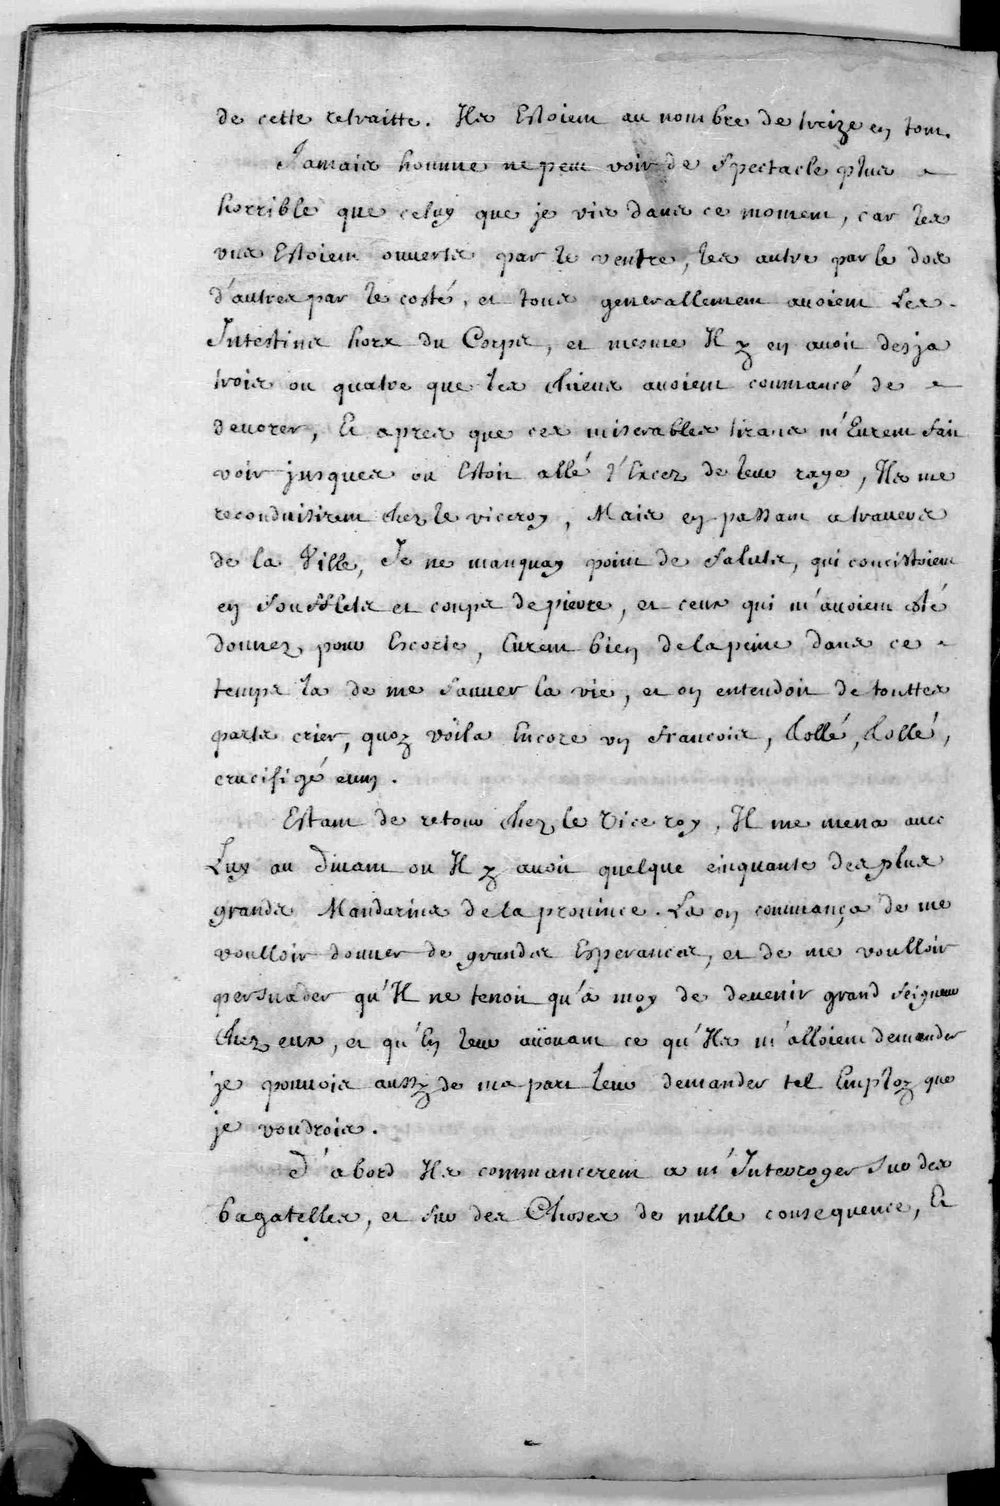 de cette retraitte. Ils Estoient au nombre de treize en tout.
Jamais homme ne peut voir de spectacle plus
horrible que celuy que je vis dans ce moment, car les
uns Estoient ouverts par le ventre, les autre par le dos
d'autres par le costé, et tous generallement avoient Les
Intestins hors du Corps, et mesme Il y en avoit desja
trois ou quatre que les chiens avoient commancé de
devorer, Et apres que ces miserables tirans m'Eurent fait
voir jusques ou Estoit allé l'Excez de leur rage, Ils me
reconduisirent chez le viceroy, Mais en passant a travers
de la Ville, Je ne manquay point de saluts, qui concistoient
en soufflets et coups de pierre, et ceux qui m'avoient esté
donnez pour Escorte, Eurent bien de la peine dans ce
temps la de me sauver la vie, et on entendoit de touttes
parts crier, quoy voila Encore un francois, tollé, tollé,
crucifigé eum.
Estant de retour chez le Vice roy, Il me mena avec
Luy au divant ou Il y avoit quelque cinquante des plus
grands Mandarins de la province. La on commança de me
voulloir donner de grandes Esperances, et de me voulloir
persuader qu'Il ne tenoit qu'a moy de devenir grand seigneur
chez eux, et qu'En leur aüouant ce qu'Ils m'alloient demander
je pouvois aussy de ma part leur demander tel Employ que
je voudrois.
D'abord Ils commancerent a m'Interroger sur des
bagatelles, et sur des Choses de nulle consequence, Et